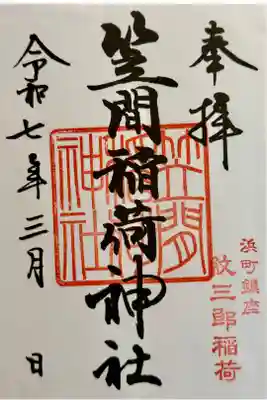 奉拝
笠間稲荷神社
笠間稲荷神社
令和七年三月 日
浜町鎮座
紋三郎稲荷